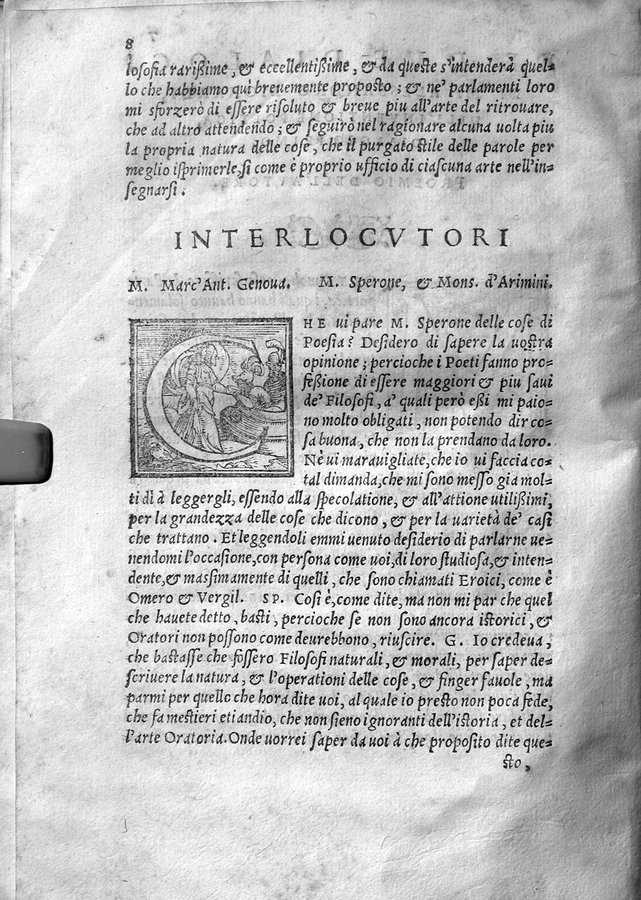 8
losofia rarissime, & eccellentissime, & da queste s'intenderà quel-
lo che habbiamo qui brevemente proposto; & ne' parlamenti loro
mi sforzerò di essere risoluto & breve piu all'arte del ritrouare,
che ad altro attendendo; & seguirò nel ragionare alcuna uolta piu
la propria natura delle cose, che il purgato stile delle parole per
meglio isprimerle, si come è proprio ufficio di ciascuna arte nell'in-
segnarsi.
INTERLOCVTORI
M. Marc'Ant. Genoua. M. Sperone, & Mons. d'Arimini.
CHE ui pare M. Sperone delle cose di
Poesia? Desidero di sapere la uostra
opinione; percioche i Poeti fanno pro-
fessione di essere maggiori & piu saui
de' Filosofi, a' quali però essi mi paio-
no molto obligati, non potendo dir co-
sa buona, che non la prendano da loro.
Nè ui marauigliate, che io ui faccia co-
tal dimanda, che mi sono messo gia mol-
ti dì à leggergli, essendo alla specolatione, & all'attione utilissimi,
per la grandezza delle cose che dicono, & per la uarietà de' casi
che trattano. Et leggendoli emmi uenuto desiderio di parlarne ue-
nendomi l'occasione, con persona come uoi, di loro studiosa, & inten-
dente, & massimamente di quelli, che sono chiamati Eroici, come è
Omero & Vergil. SP. Cosi è, come dite, ma non mi par che quel
che hauete detto, basti, percioche se non sono ancora istorici, &
Oratori non possono come deurebbono, riuscire. G. Io credeua,
che bastasse che fossero Filosofi naturali, & morali, per saper de-
scriuere la natura, & l'operationi delle cose, & finger fauole, ma
parmi per quello che hora dite uoi, al quale io presto non poca fede,
che fa mestieri etiandio, che non sieno ignoranti dell'istoria, et del-
l'arte Oratoria. Onde uorrei saper da uoi à che proposito dite que-
sto,